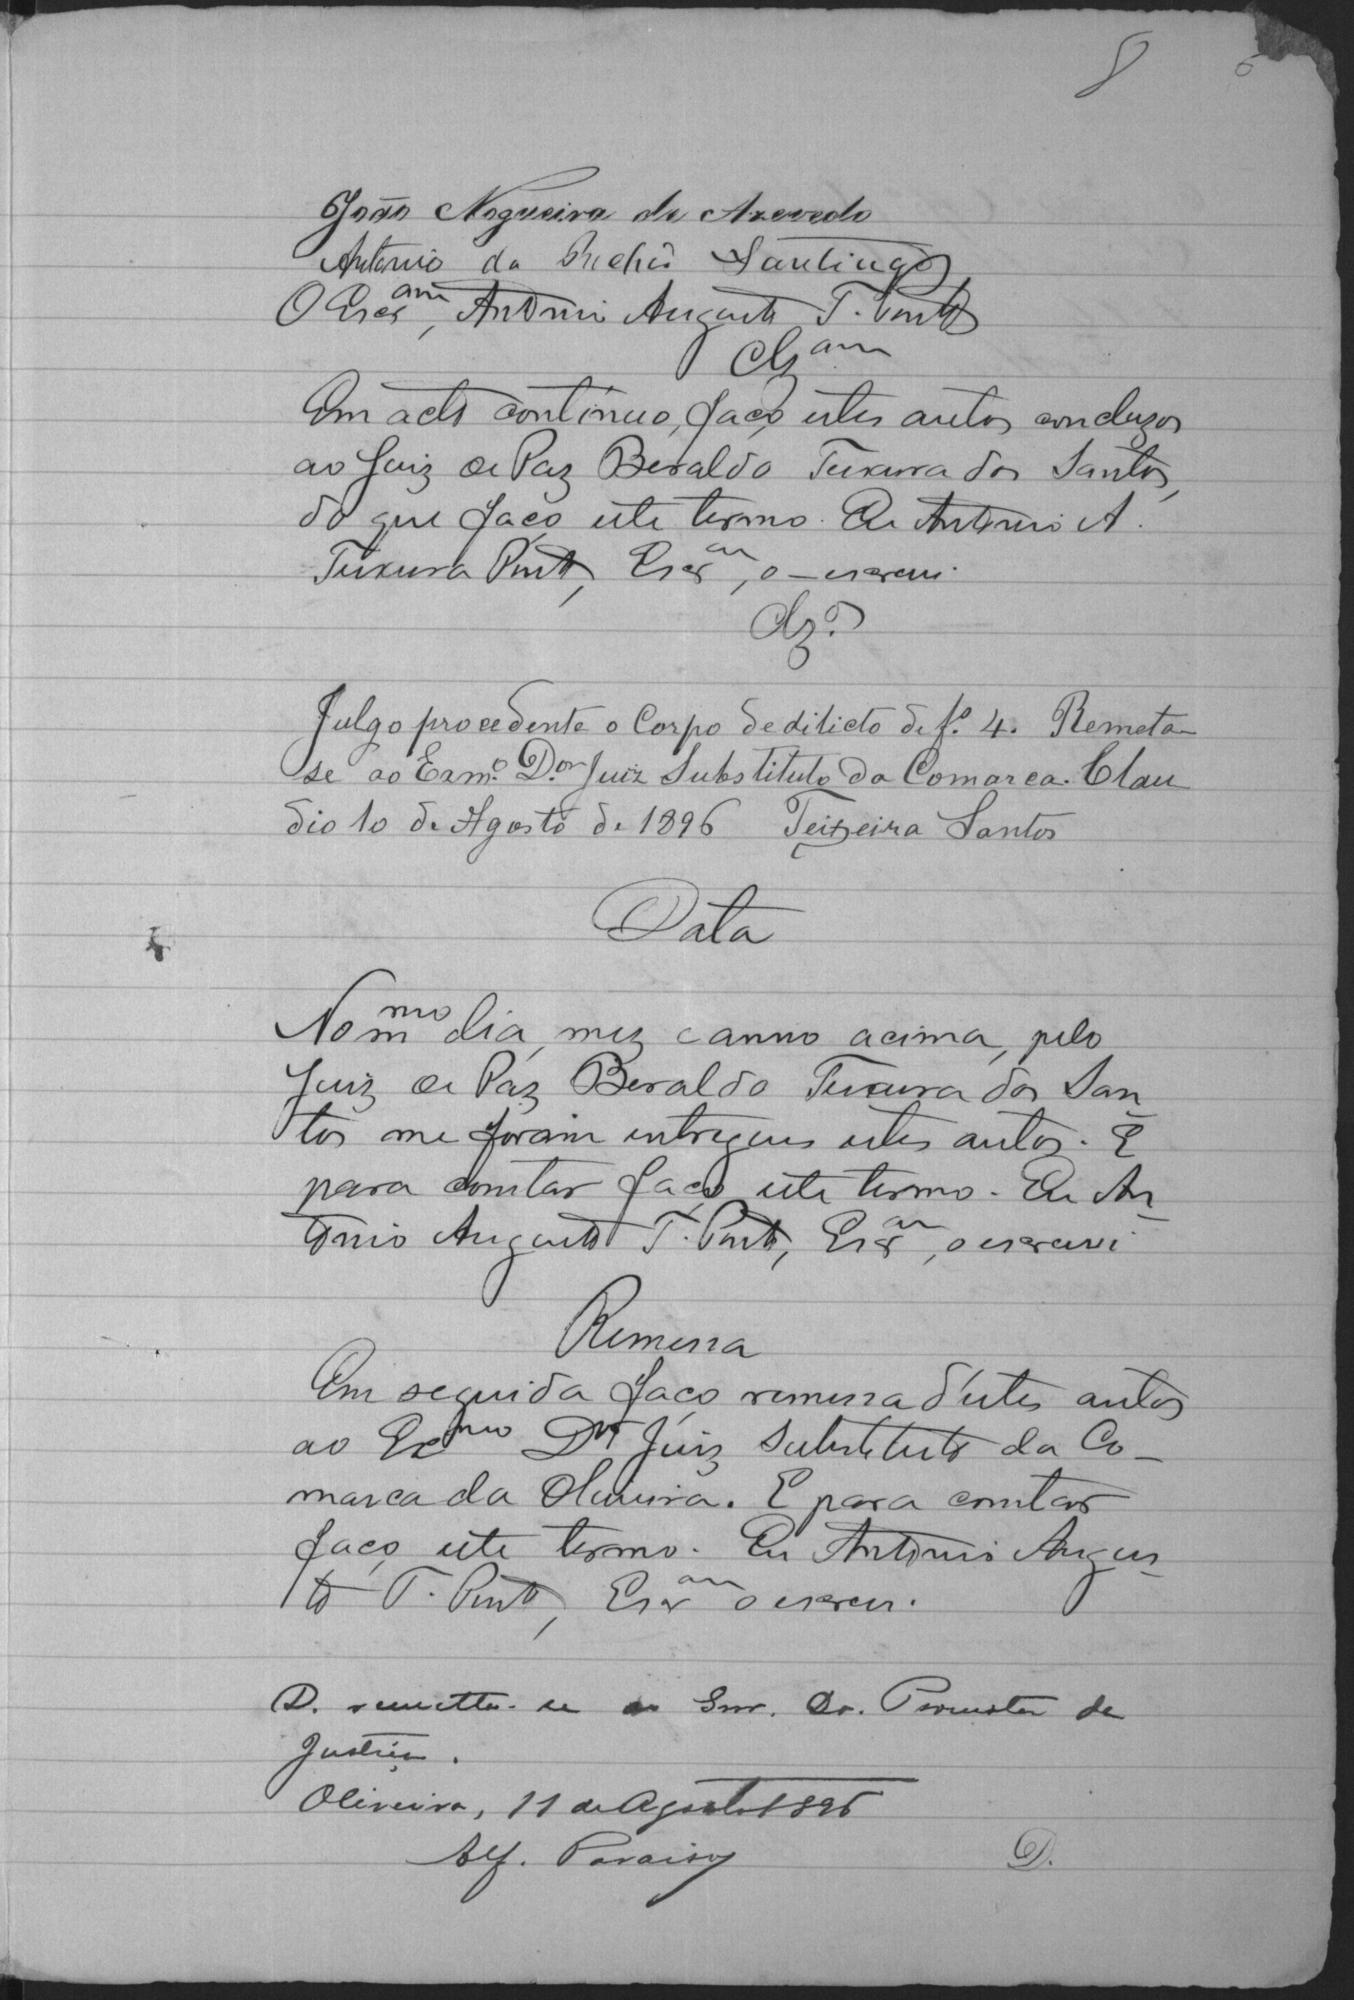 8
6
João Nogueira de Azevedo
Antonio da Santiago
O Escr.am, Antonio Augusto T. Pinto
Clzam
Em acto contínuo, faço estes autos concluzos
ao Juiz de Paz Beraldo Teixeira dos Santos,
do que faço este termo. Eu Antonio A.
Teixeira Pinto, Escram, o-escrevi.
Clz.o
Julgo procedente o Corpo de dilicto de f.o 4. Remeta-
se ao Exmo. D.or Juiz Substituto da Comarca. Clau
dio 10 de Agosto de 1896 Teixeira Santos
Data
No mmo dia, mez e anno acima, pelo
Juiz de Paz Beraldo Teixeira dos San
tos me foram entregues estes autos. E
para constar faço este termo. Eu An
tonio Augusto T. Pinto, Escram, o escrevi
Remessa
Em seguida faço remessa d'estes autos
ao Exmo Dor Juiz Substituto da Co-
marca da Oliveira. E para constar
faço este termo. Eu Antonio Augus
to T. Pinto, Escram o escrevi.
D. remetta-se ao Snr. Dr. Promotor de
Justiça.
Oliveira, 11 de Agosto 1896
Alf. Paraiso
D.